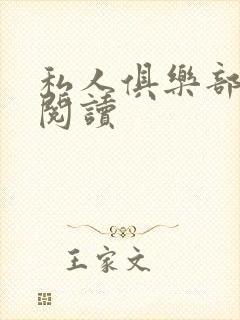 私人俱樂部
閱讀
王家文